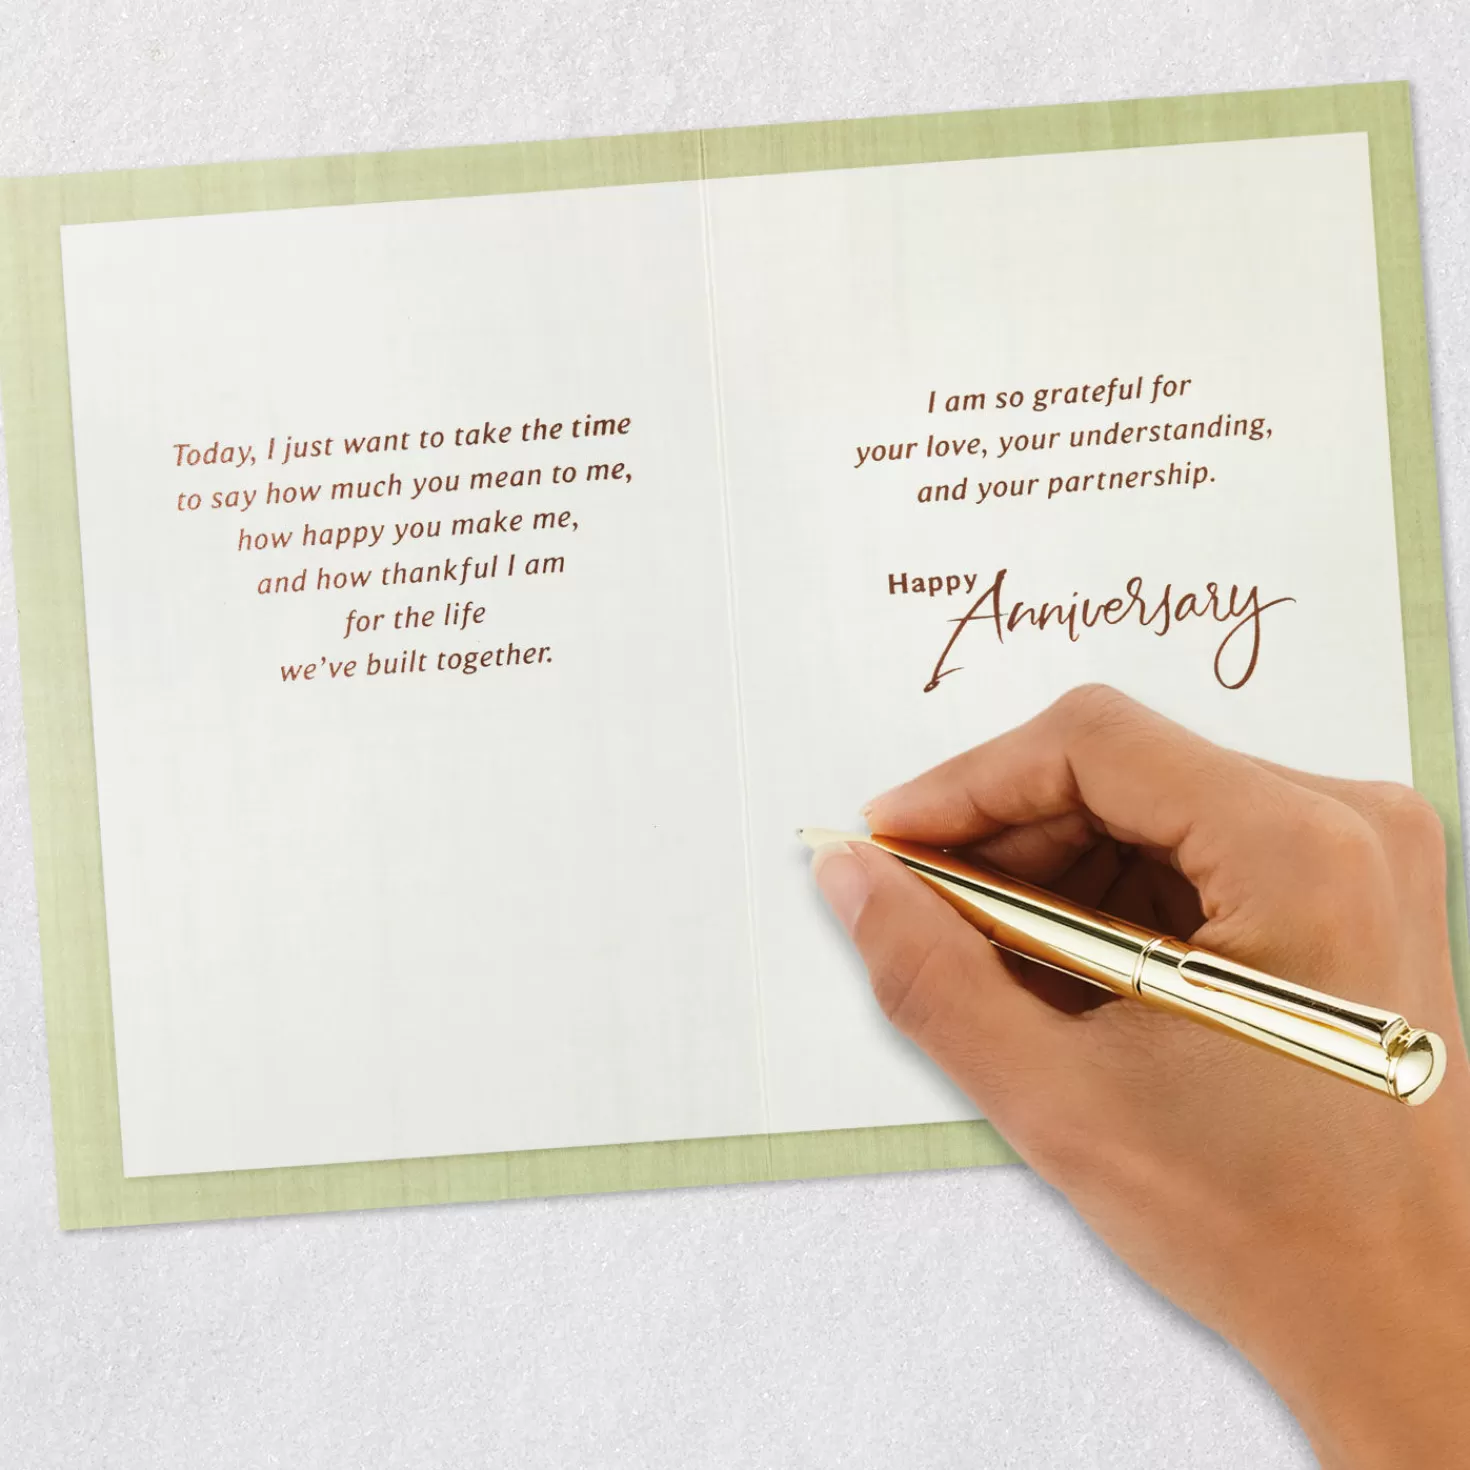 Today, I just want to take the time
to say how much you mean to me,
how happy you make me,
and how thankful I am
for the life
we've built together.
I am so grateful for
your love, your understanding,
and your partnership.
Happy Anniversary